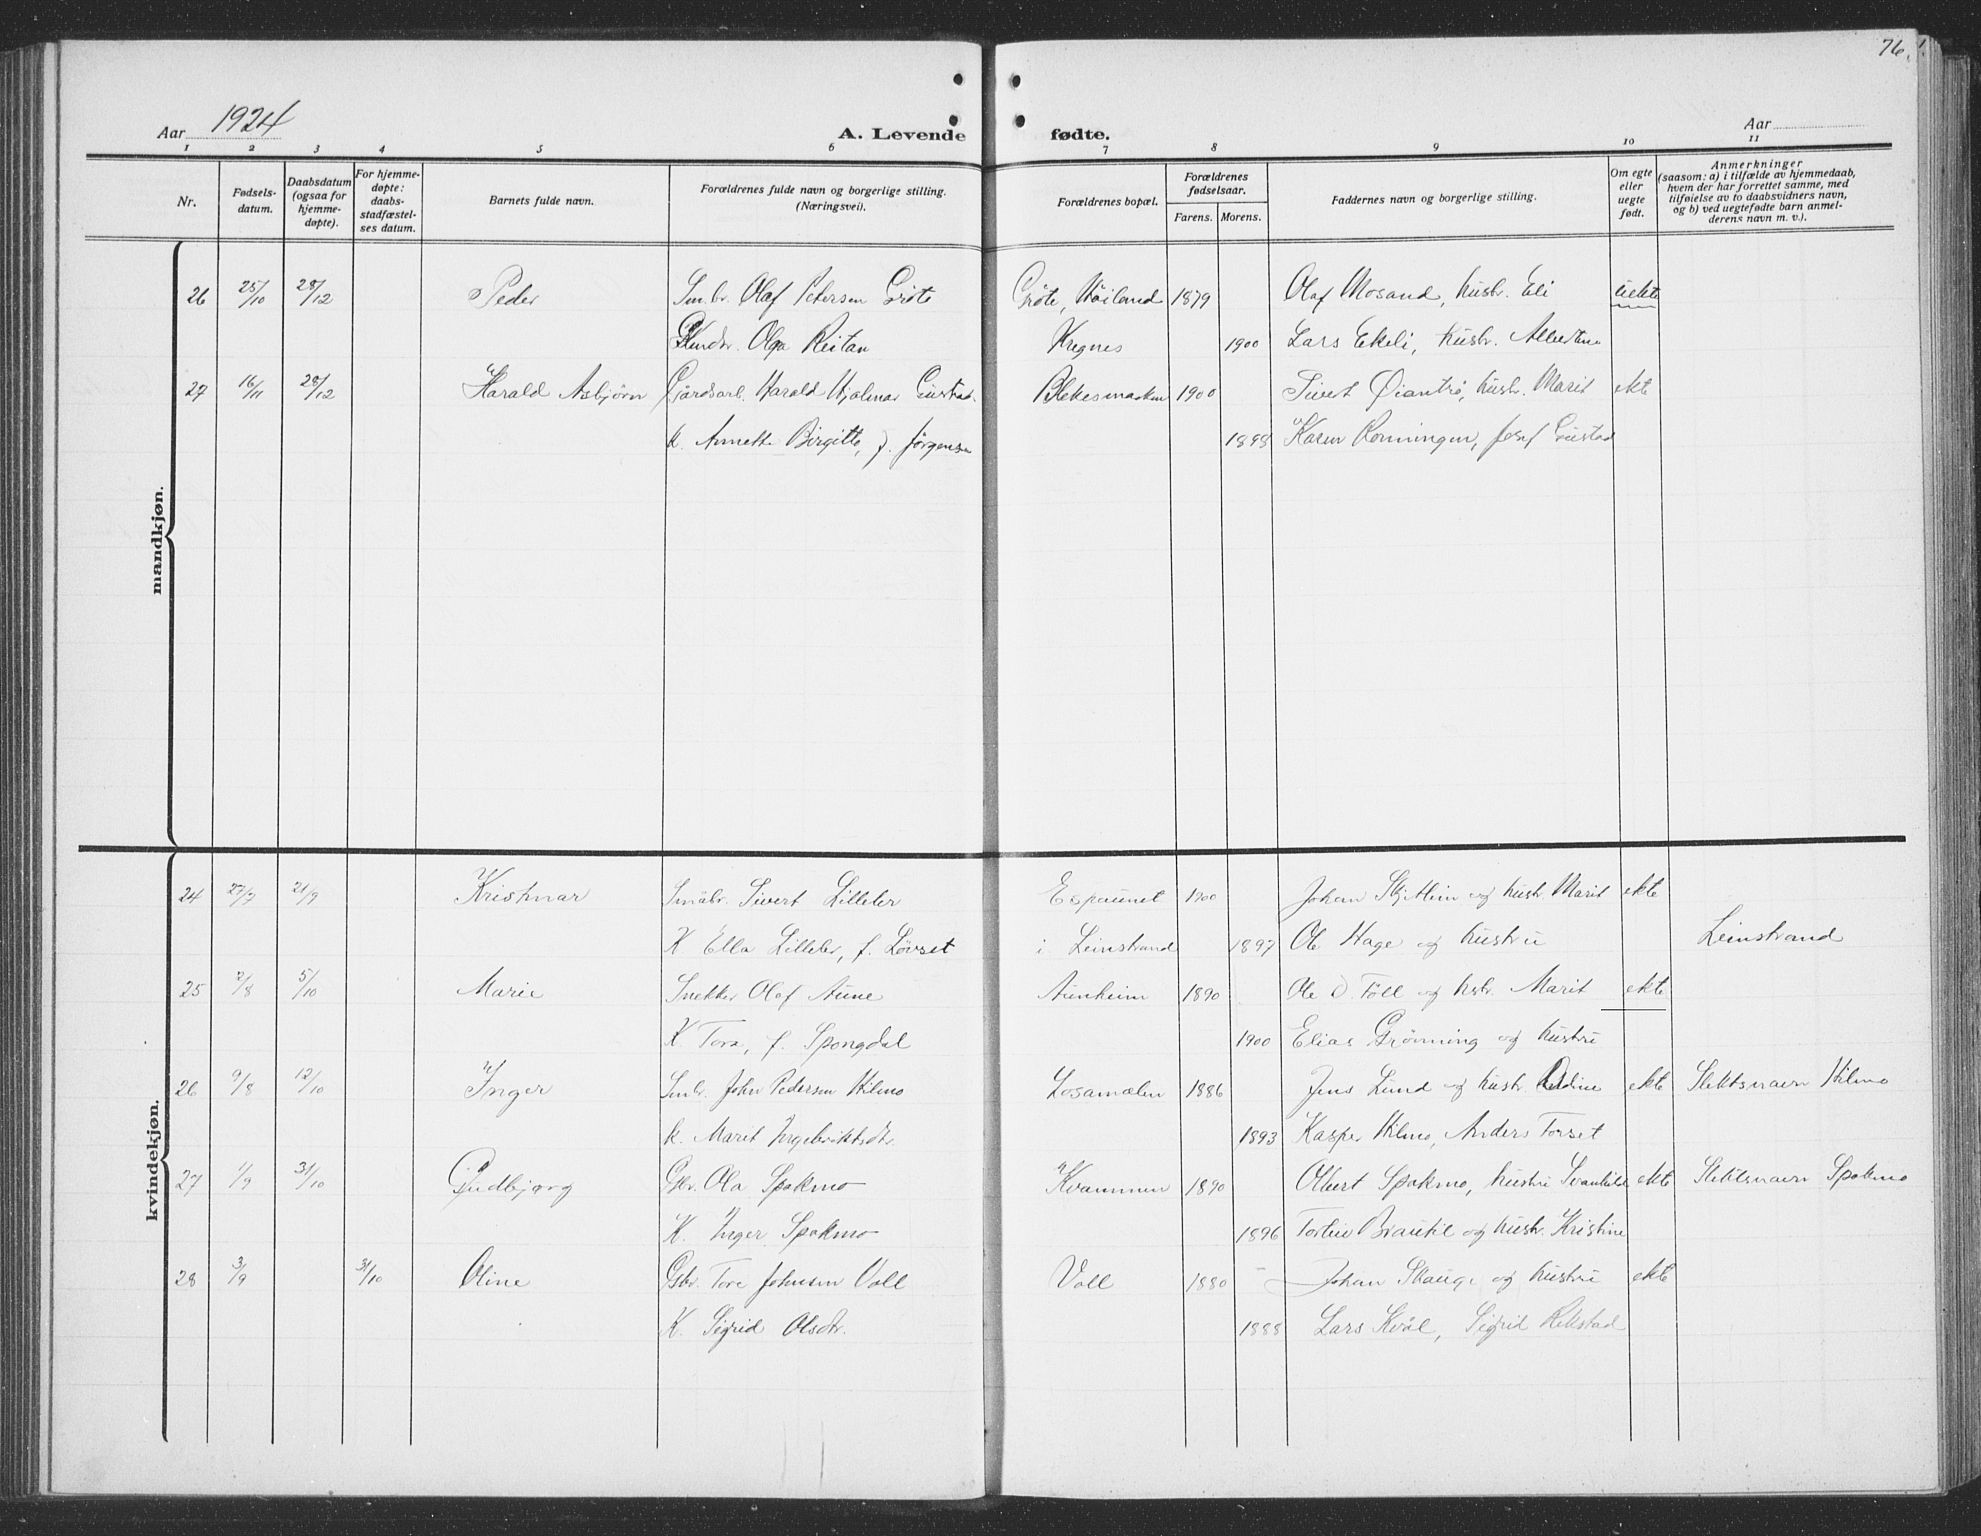 76.
Aar 1924 A. Levende fødte. Aar
1 2 3 4 5 6 7 8 9 10 11
Nr.
Fødsels-
datum.
Daabsdatum
(ogsaa for
hjemme-
døpte).
For hjemme-
døpte:
daabs-
stadfæstel-
ses datum.
Barnets fulde navn.
Forældrenes fulde navn og borgerlige stilling.
(Næringsvei).
Forældrenes bopæl.
Forældrenes
fødselsaar.
Farens. Morens.
Faddernes navn og borgerlige stilling.
Om egte
eller
uegte
født.
Anmerkninger
(saasom: a) i tilfælde av hjemmedaab,
hvem der har forrettet samme, med
tilføielse av to daabsvidners navn,
og b) ved uegtefødte barn anmel-
derens navn m. v.).
mandkjøn.
26 25/10 28/12 Peder Smbr. Olaf Petersen Grøte Grøte, Høiland 1879 Olaf Mosand, hustr. Eli uekte
Olga Reitan Kregnes 1900 Lars Ekeli, hustr. Albertine
27 16/11 28/12 Harald Asbjørn Gårdsarb. Harald Hjalmar Gustad Blekesmarken 1900 Sivert Øiantrø, hustr. Marit ekte
k. Annette Birgitte, f. Jørgensen 1898 Karen Ronningen, Josef Gustad
kvindekjøn.
24 27/7 21/9 Kristmar Småbr. Sivert Lilleler Espaunet 1900 Johan og hustr. Marit ekte
K Ella Lilleler, f. Løvset i Leinstrand 1897 Ole Hage og hustru Leinstrand
25 2/8 5/10 Marie Snekker Olaf Aune Aunheim 1890 Ole D. Föll og hstr. Marit ekte
K Tora, f. Spongdal 1900 Elias Grønning og hustru
26 9/8 12/10 Inger Smbr. John Pedersen Hilmo Losamælen 1886 Jens Lund og hustr. ekte Slektsnavn Hilmo
k. Marit Ingebriktsdtr. 1893 Kasper Hilmo, Anders Torset
27 1/9 31/10 Gudbjørg Gbr. Ola Spokmo Kvammen 1890 Olbert Spokmo, hustru Svanhild ekte Slektsnavn Spokmo
K. Inger Spokmo 1896 Brautil og hustr. Kristine
28 3/9 31/10 Oline Gbr. Tore Johnsen Voll Voll 1880 Johan Skauge og hustru ekte
K. Sigrid Olsdtr. 1888 Lars Kvål, Sigrid Rekstad